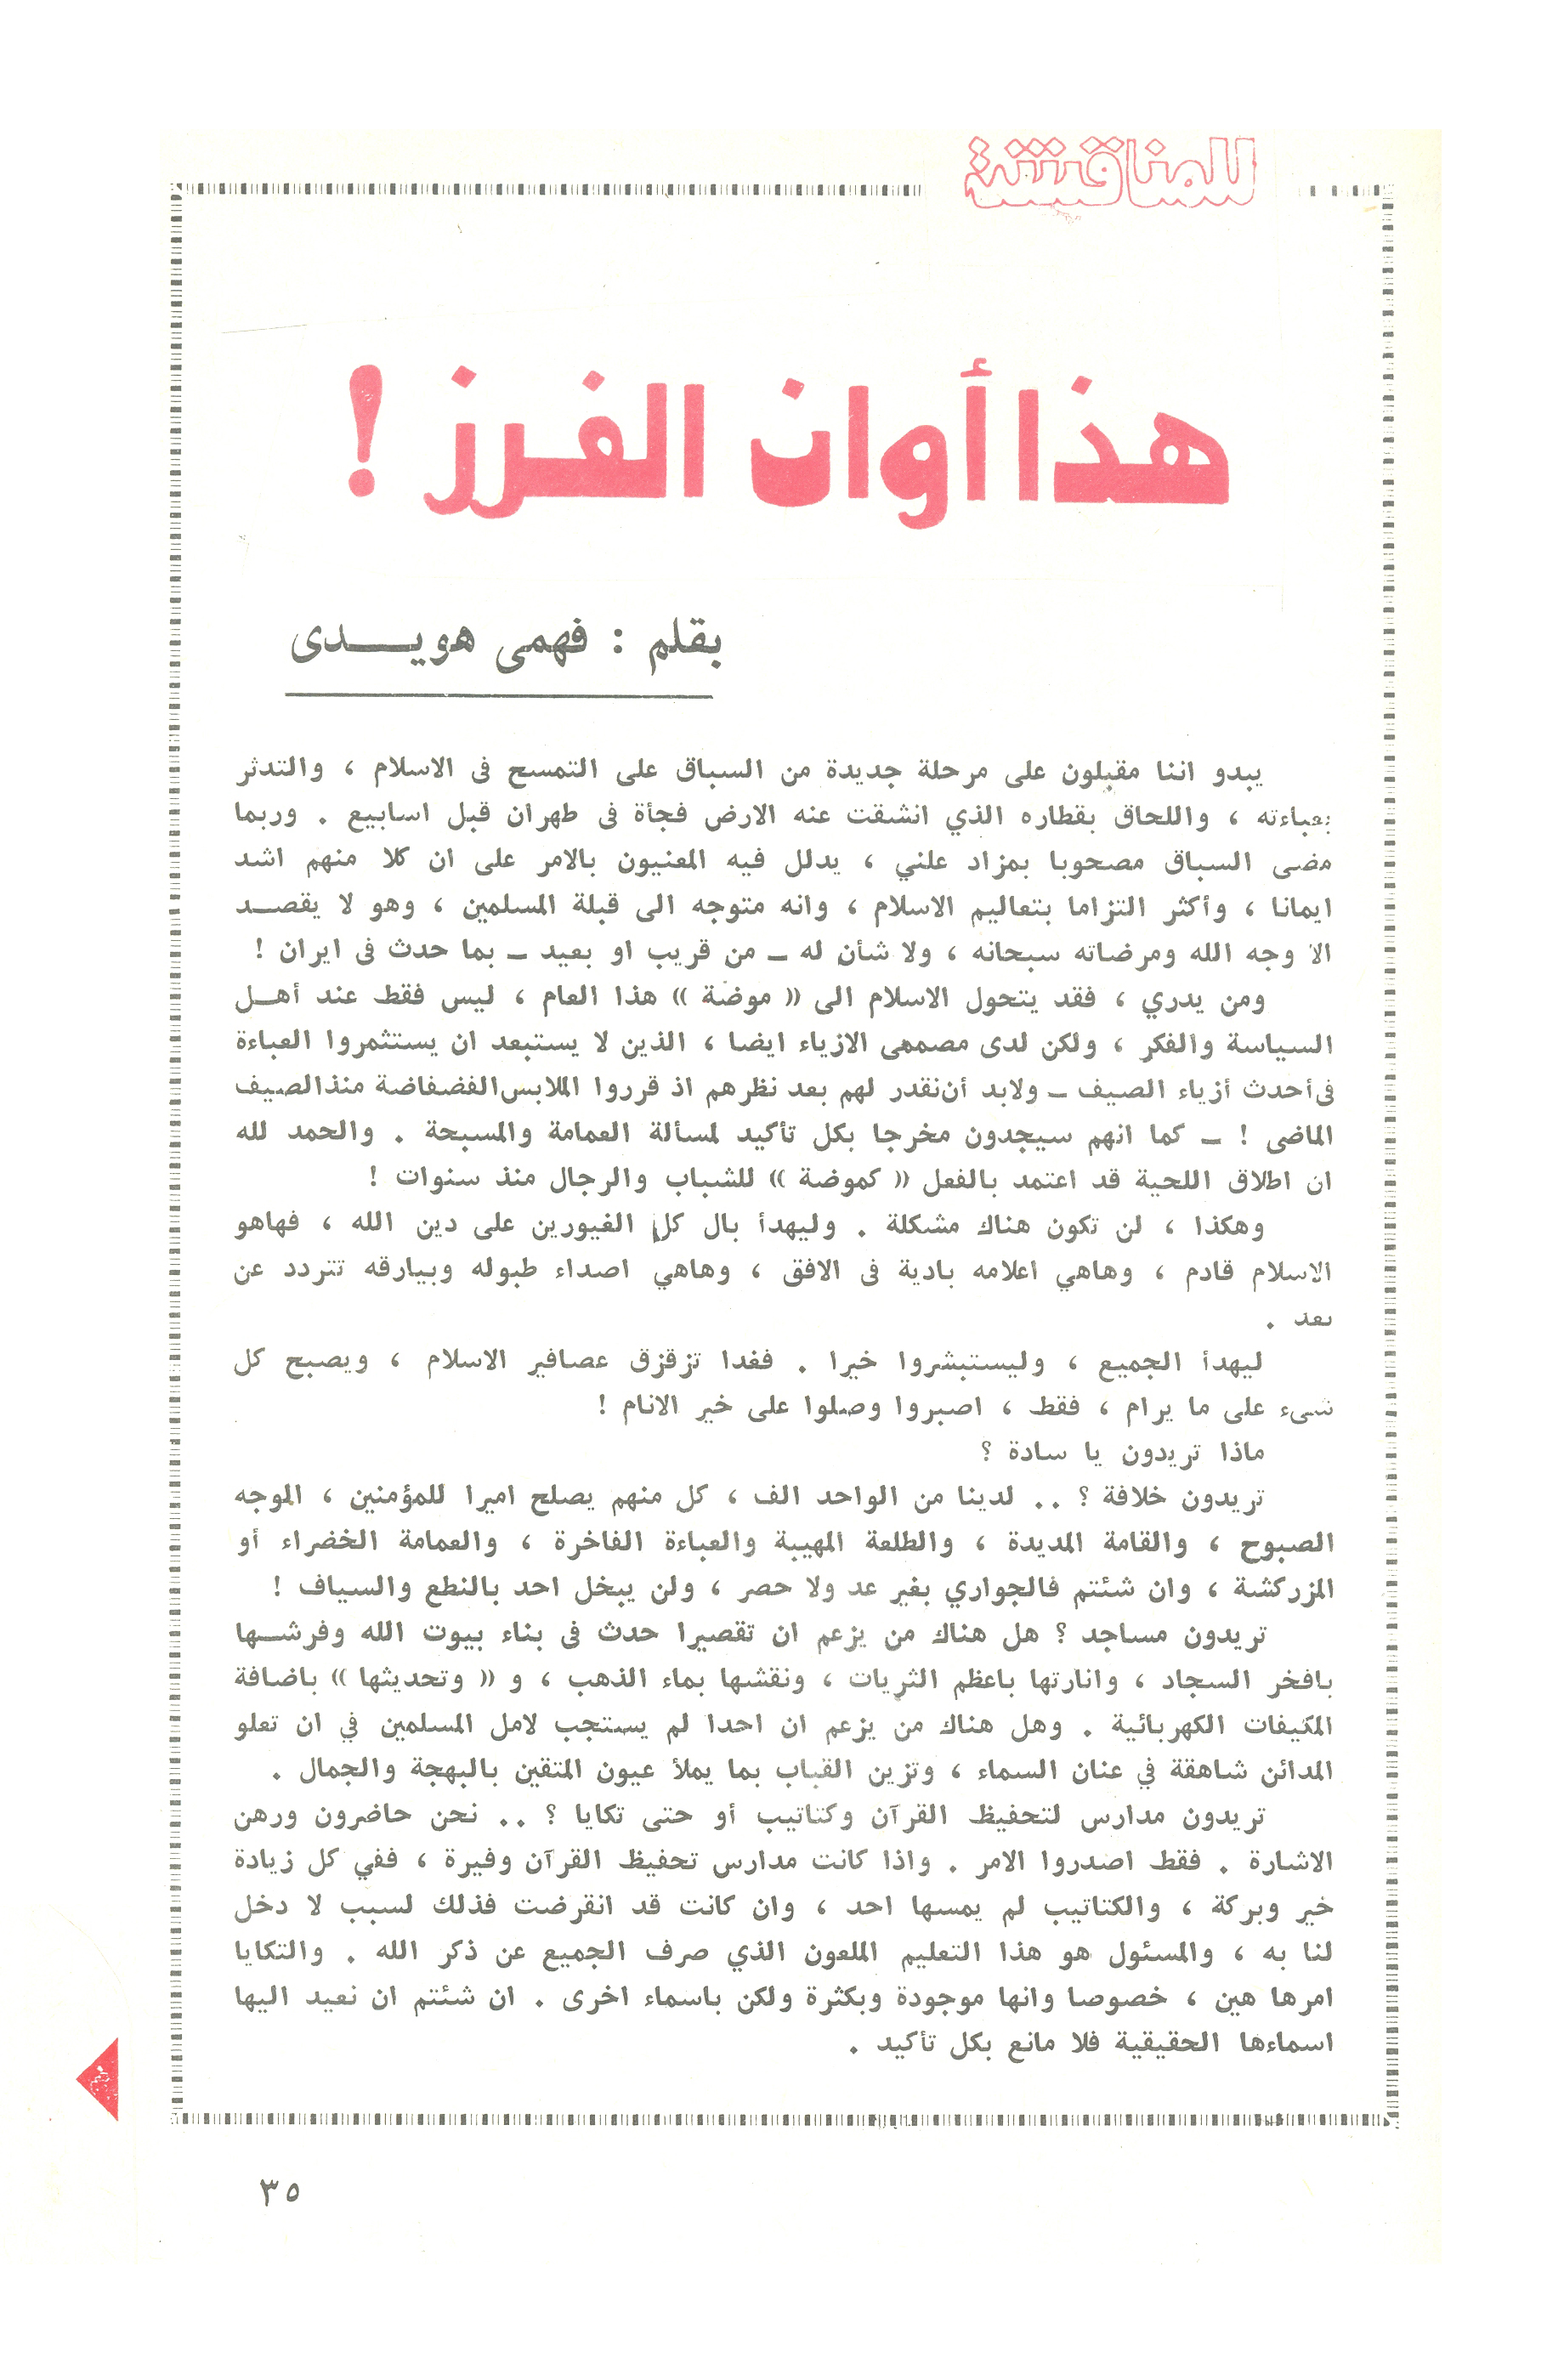 للمناقشة
هذا أوان الفرز !
بقلم : فهمى هويــــدى
يبدو اننا مقبلون على مرحلة جديدة من السباق على التمسح فى الاسلام ، والتدثر
بعباءته ، واللحاق بقطاره الذي انشقت عنه الارض فجأة فى طهران قبل اسابيع . وربما
مضى السباق مصحوبا بمزاد علني ، يدلل فيه المعنيون بالامر على ان كلا منهم اشد
ايمانا ، وأكثر التزاما بتعاليم الاسلام ، وانه متوجه الى قبلة المسلمين ، وهو لا يقصــد
الا وجه الله ومرضاته سبحانه ، ولا شأن له ــ من قريب او بعيد ــ بما حدث فى ايران !
ومن يدري ، فقد يتحول الاسلام الى « موضة » هذا العام ، ليس فقط عند أهــل
السياسة والفكر ، ولكن لدى مصممى الازياء ايضا ، الذين لا يستبعد ان يستثمروا العباءة
فى أحدث أزياء الصيف ــ ولابد أن نقدر لهم بعد نظرهم اذ قرروا الملابس الفضفاضة منذ الصيف
الماضى ! ــ كما انهم سيجدون مخرجا بكل تأكيد لمسألة العمامة والمسبحة . والحمد لله
ان اطلاق اللحية قد اعتمد بالفعل « كموضة » للشباب والرجال منذ سنوات !
وهكذا ، لن تكون هناك مشكلة . وليهدأ بال كل الغيورين على دين الله ، فهاهو
الاسلام قادم ، وهاهي اعلامه بادية فى الافق ، وهاهي اصداء طبوله وبيارقه تتردد عن
بعد .
ليهدأ الجميع ، وليستبشروا خيرا . فغدا تزقزق عصافير الاسلام ، ويصبح كل
شىء على ما يرام ، فقط ، اصبروا وصلوا على خير الانام !
ماذا تريدون يا سادة ؟
تريدون خلافة ؟ .. لدينا من الواحد الف ، كل منهم يصلح اميرا للمؤمنين ، الموجه
الصبوح ، والقامة المديدة ، والطلعة المهيبة والعباءة الفاخرة ، والعمامة الخضراء أو
المزركشة ، وان شئتم فالجواري بغير عد ولا حصر ، ولن يبخل احد بالنطع والسياف !
تريدون مساجد ؟ هل هناك من يزعم ان تقصيرا حدث فى بناء بيوت الله وفرشــها
بافخر السجاد ، وانارتها باعظم الثريات ، ونقشها بماء الذهب ، و « وتحديثها » باضافة
المكيفات الكهربائية . وهل هناك من يزعم ان احدا لم يستجب لامل المسلمين في ان تعلو
المدائن شاهقة في عنان السماء ، وتزين القباب بما يملأ عيون المتقين بالبهجة والجمال .
تريدون مدارس لتحفيظ القرآن وكتاتيب أو حتى تكايا ؟ .. نحن حاضرون ورهن
الاشارة . فقط اصدروا الامر . واذا كانت مدارس تحفيظ القرآن وفيرة ، ففي كل زيادة
خير وبركة ، والكتاتيب لم يمسها احد ، وان كانت قد انقرضت فذلك لسبب لا دخل
لنا به ، والمسئول هو هذا التعليم الملعون الذي صرف الجميع عن ذكر الله . والتكايا
امرها هين ، خصوصا وانها موجودة وبكثرة ولكن باسماء اخرى . ان شئتم ان نعيد اليها
اسماءها الحقيقية فلا مانع بكل تأكيد .
٣٥